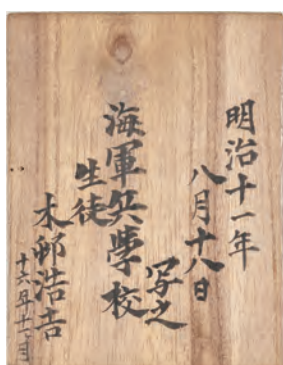 明治十一年
八月十八日
写之
海軍兵学校
生徒
木邨浩吉
十六年十一月